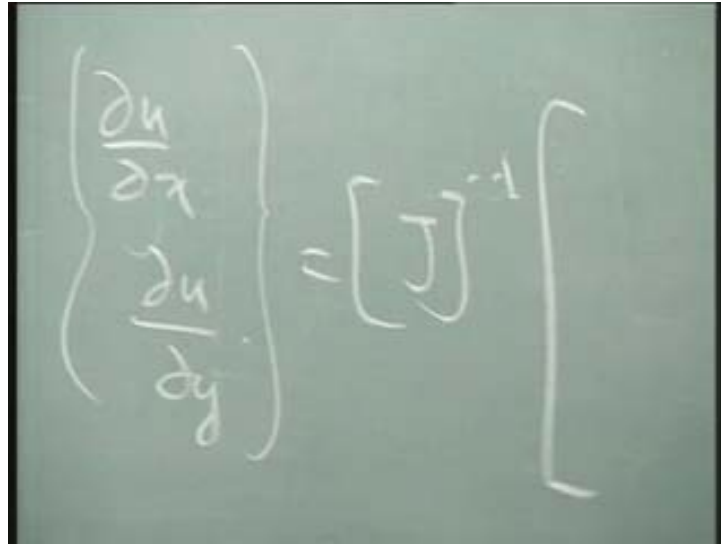 {∂u/∂x
∂u/∂y} = [J]⁻¹ [